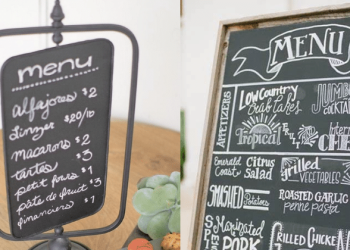 menu
alfajores $2
$20/10
macarons $2
tartes $3
petit fours $1
pâte de fruit $3
financiers $1
MENU
APPETIZERS
Low Country
Crab Cakes
JUMBO
COCKTAIL
Tropical
FRUIT
CHE
Emerald Coast
Citrus Salad
Grilled
VEGETABLES
SMASHED
Potatoes
ROASTED GARLIC
penne pasta
Marinated
PORK
GRILLED
CHICKEN